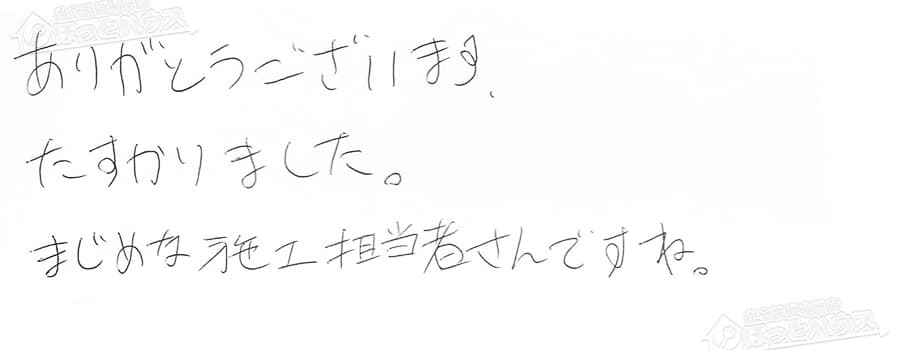 ありがとうございます、
たすかりました。
まじめな施工担当者さんですね。
ほっとハウス
ほっとハウス